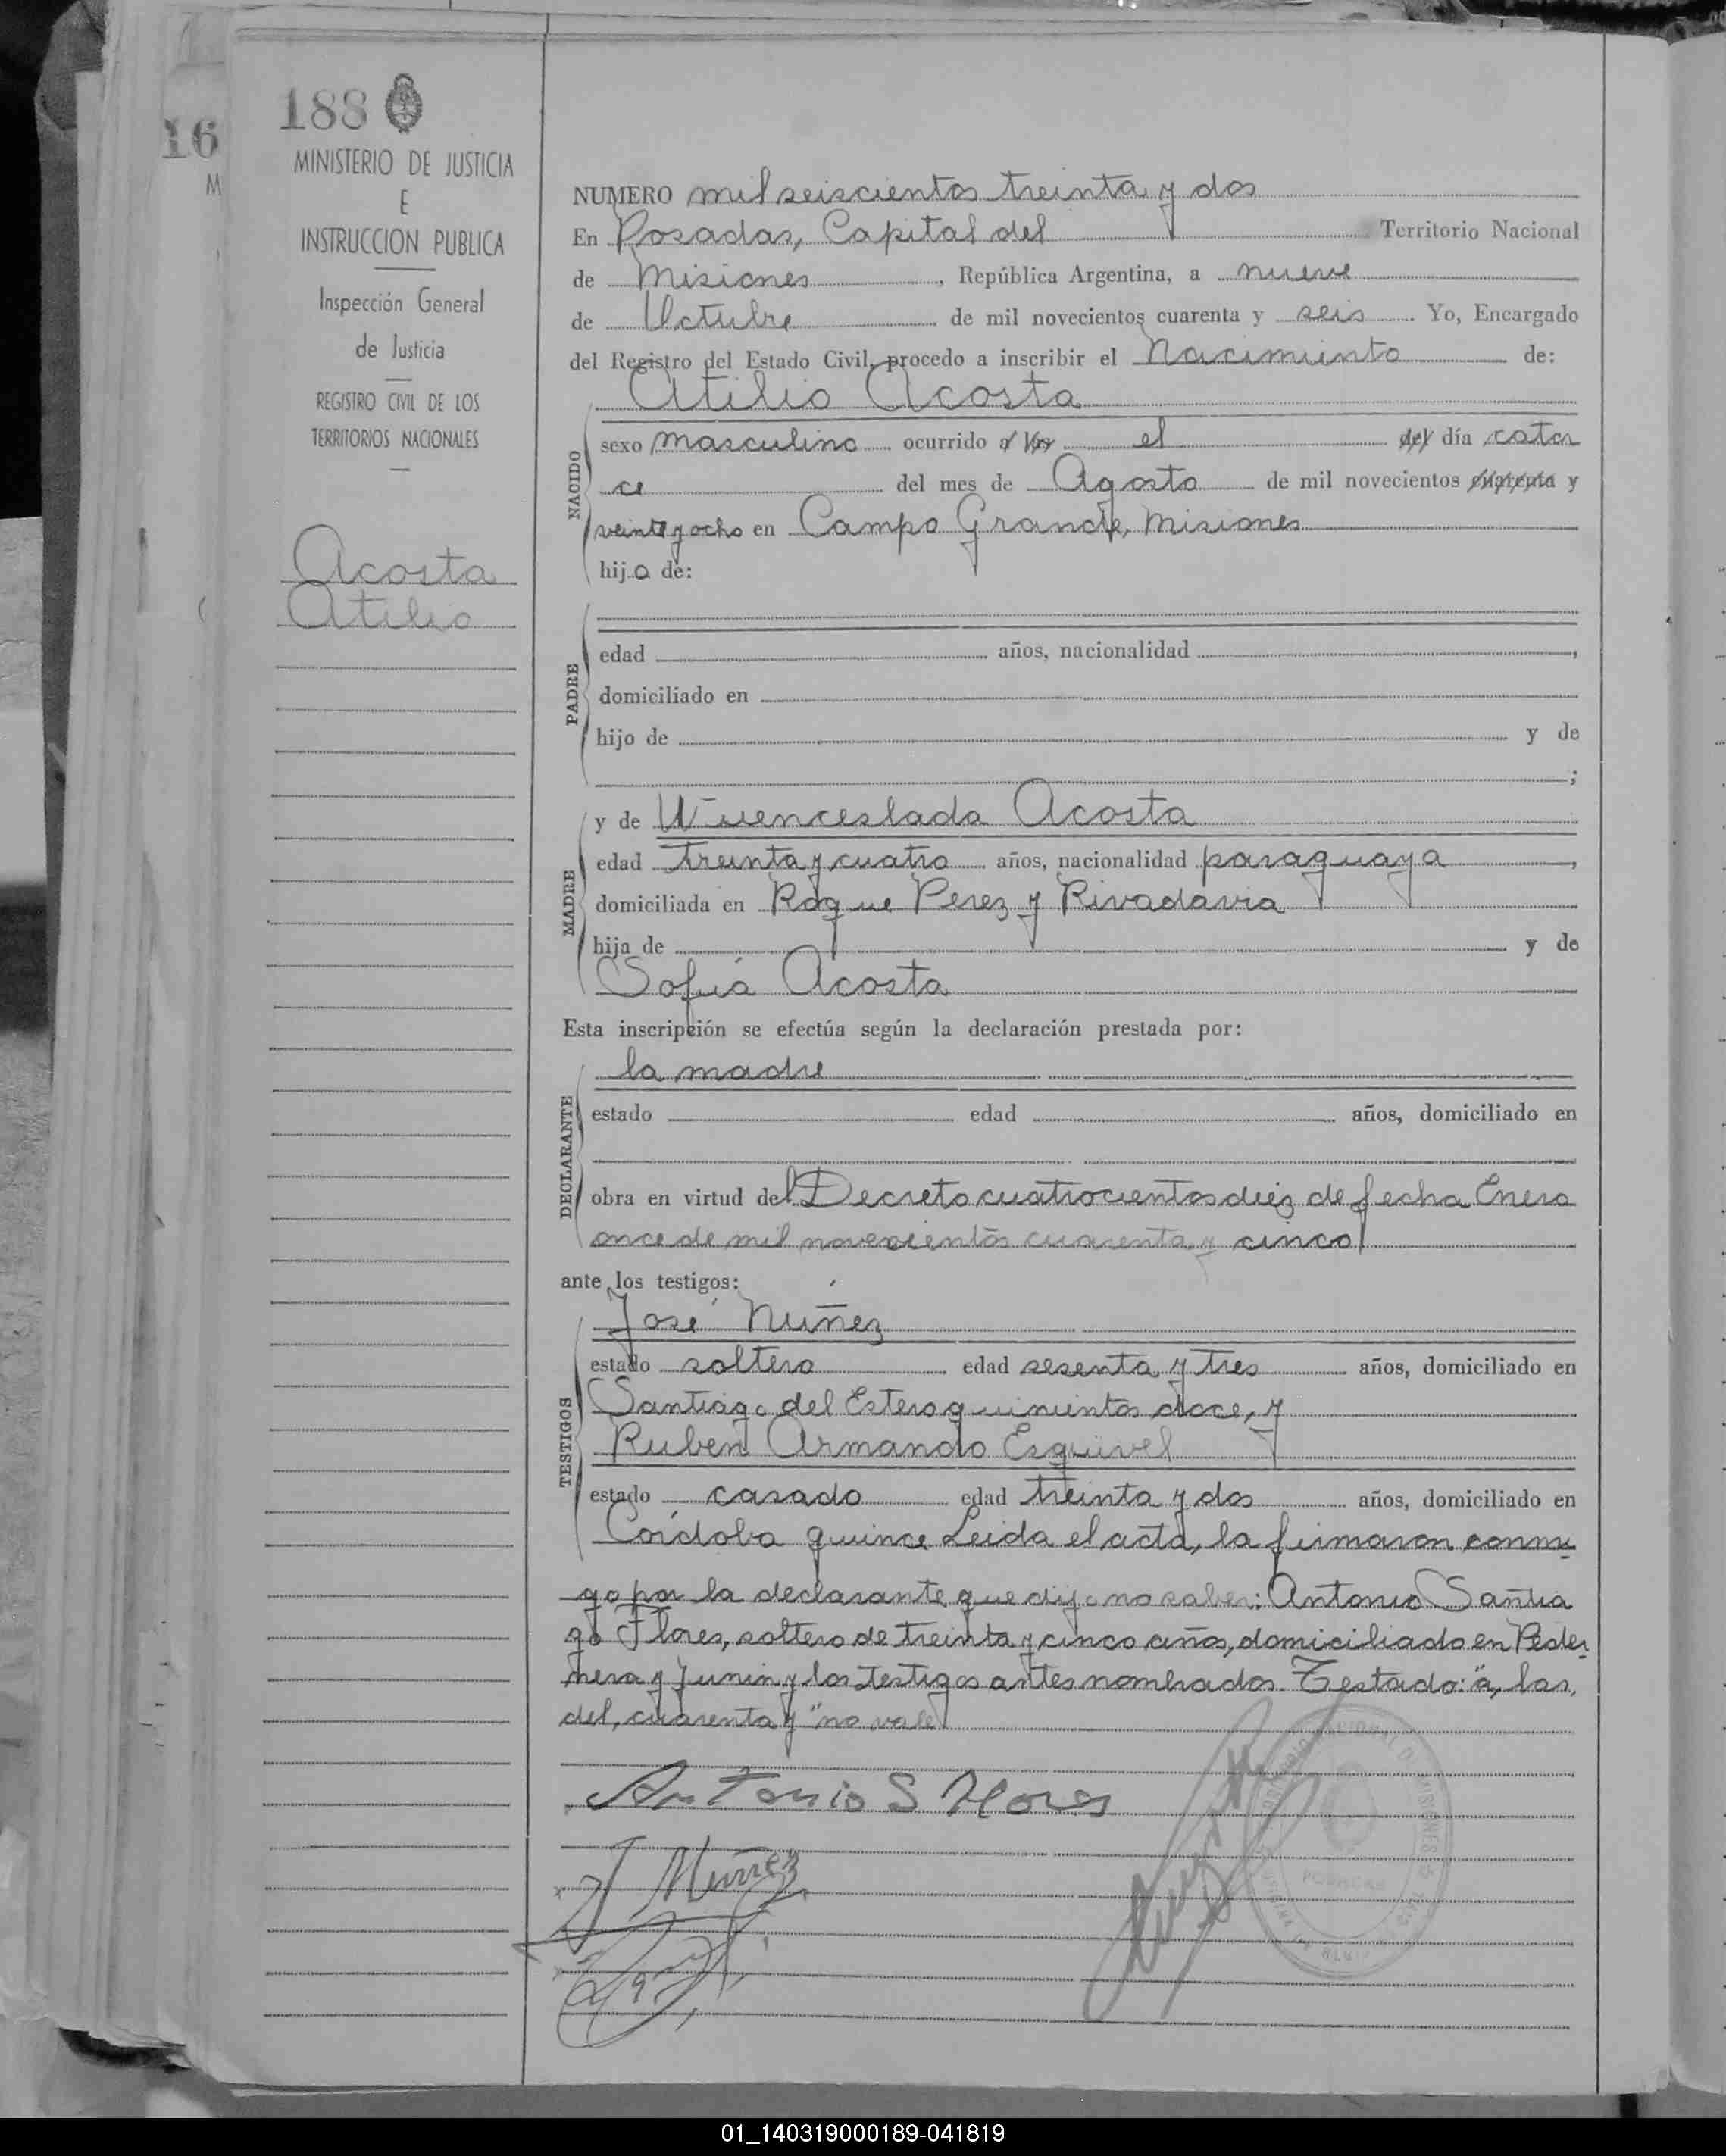 188
16
M
MINISTERIO DE JUSTICIA
E
INSTRUCCION PUBLICA
Inspección General
de Justicia
REGISTRO CIVIL DE LOS
TERRITORIOS NACIONALES
Acosta
Atilio
NUMERO mil seiscientos treinta y dos
En Posadas, Capital del Territorio Nacional
de Misiones, República Argentina, a nueve
de Octubre de mil novecientos cuarenta y seis. Yo, Encargado
del Registro del Estado Civil, procedo a inscribir el Nacimiento de:
Atilio Acosta
NACIDO
sexo masculino ocurrido a las el del día cator
ce del mes de Agosto de mil novecientos cuarenta y
veinte y ocho en Campo Grande, Misiones
hijo de:
PADRE
edad años, nacionalidad ,
domiciliado en
hijo de y de
;
MADRE
y de Wuenceslada Acosta
edad treinta y cuatro años, nacionalidad paraguaya,
domiciliada en Roque Perez y Rivadavia
hija de y de
Sofía Acosta
Esta inscripción se efectúa según la declaración prestada por:
la madre
DECLARANTE
estado edad años, domiciliado en
obra en virtud del Decreto cuatrocientos diez de fecha Enero
once de mil novecientos cuarenta y cinco
ante los testigos:
José Núñez
TESTIGOS
estado soltero edad sesenta y tres años, domiciliado en
Santiago del Estero quinientos doce, y
Ruben Armando Esquivel
estado casado edad treinta y dos años, domiciliado en
Córdoba quince Leida el acta, la firmaron conmi-
go por la declarante que dijo no saber: Antonio Santia
go Flores, soltero de treinta y cinco años, domiciliado en Peder-
nera y Junin y los testigos antes nombrados. Testado: "a, las,
del, cuarenta y" no vale
Antonio S Flores
J Nuñez
POSADAS
01_140319000189-041819